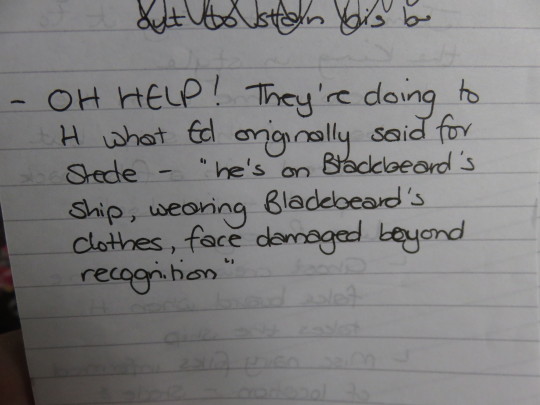 - OH HELP! They're doing to
H what Ed originally said for
Stede - "he's on Blackbeard's
ship, wearing Blackbeard's
clothes, face damaged beyond
recognition"